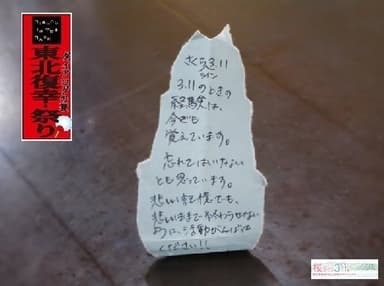 東北復幸祭り
さくら3.11
ライン
3.11のときの
経験は、
今でも
覚えています。
忘れてはいけない
とも思っています。
悲しい記憶でも、
悲しいままで終わらせない
ように、活動がんばって
ください!!